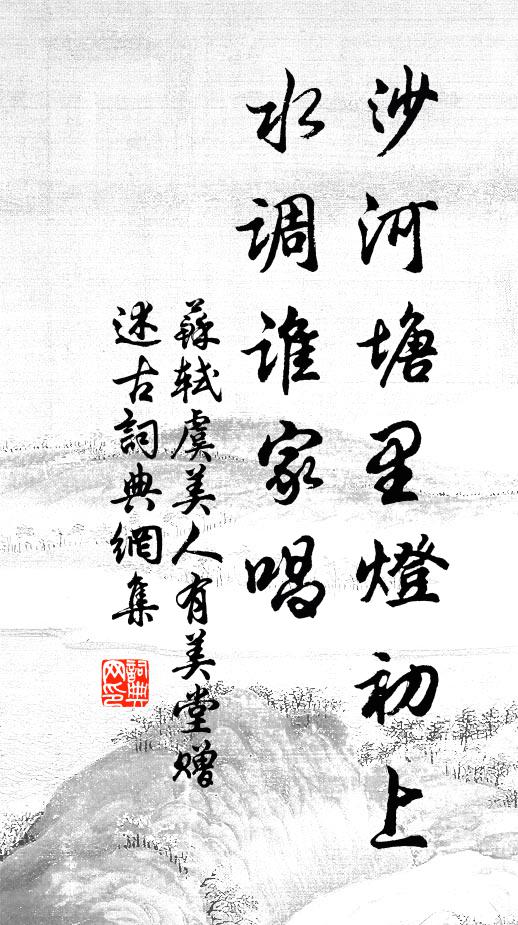 沙河塘里燈初上
水調誰家唱
蘇軾虞美人有美堂贈
述古詞典網集
詞典
网印